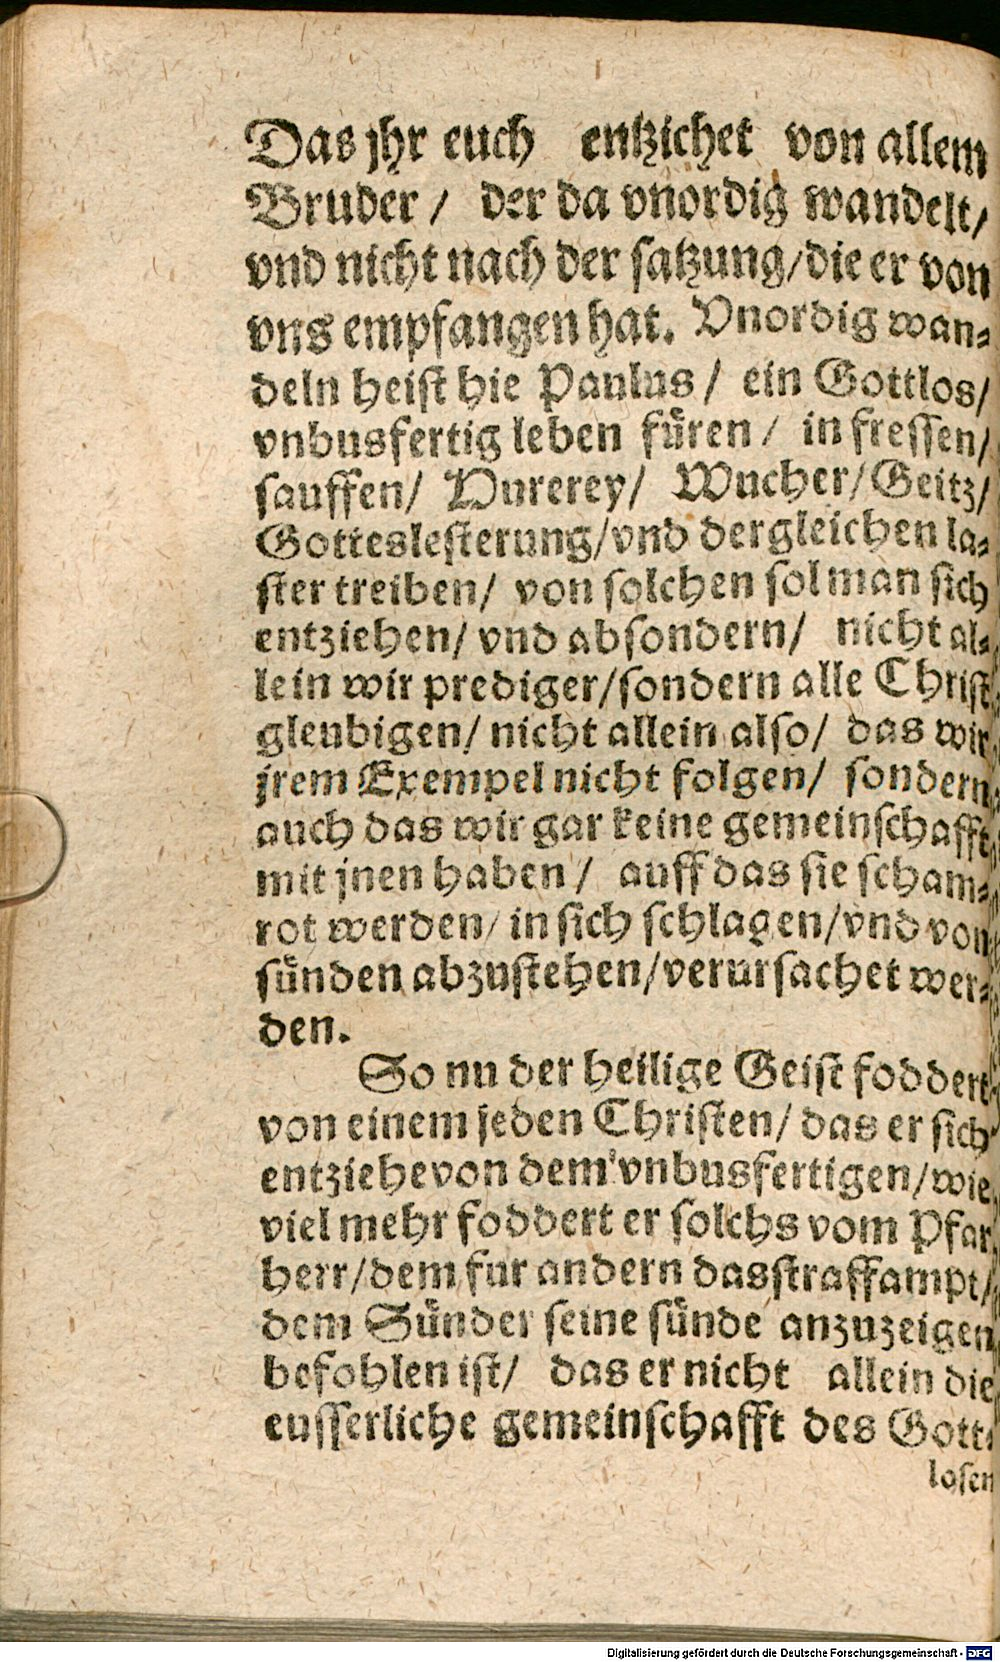 Das jhr euch entzichet von allem
Bruder / der da vnordig wandelt/
vnd nicht nach der satzung/die er von
vns empfangen hat. Vnordig wan-
deln heist hie Paulus / ein Gottlos/
vnbusfertig leben füren / in fressen/
sauffen/ Hurerey/ Wucher/Geitz/
Gotteslesterung/vnd dergleichen la-
ster treiben/ von solchen sol man sich
entziehen/ vnd absondern/ nicht al-
lein wir prediger/sondern alle Christ
gleubigen/ nicht allein also/ das wir
jrem Exempel nicht folgen/ sondern
auch das wir gar keine gemeinschafft
mit jnen haben / auff das sie scham-
rot werden/ in sich schlagen/vnd von
sünden abzustehen/verursachet wer-
den.
So nu der heilige Geist foddert
von einem jeden Christen/ das er sich
entziehe von dem vnbusfertigen/wie
viel mehr foddert er solchs vom Pfar
herr/dem fur andern das straffampt/
dem Sünder seine sünde anzuzeigen
befohlen ist/ das er nicht allein die
eusserliche gemeinschafft des Gott-
losen
Digitalisierung gefördert durch die Deutsche Forschungsgemeinschaft - DFG